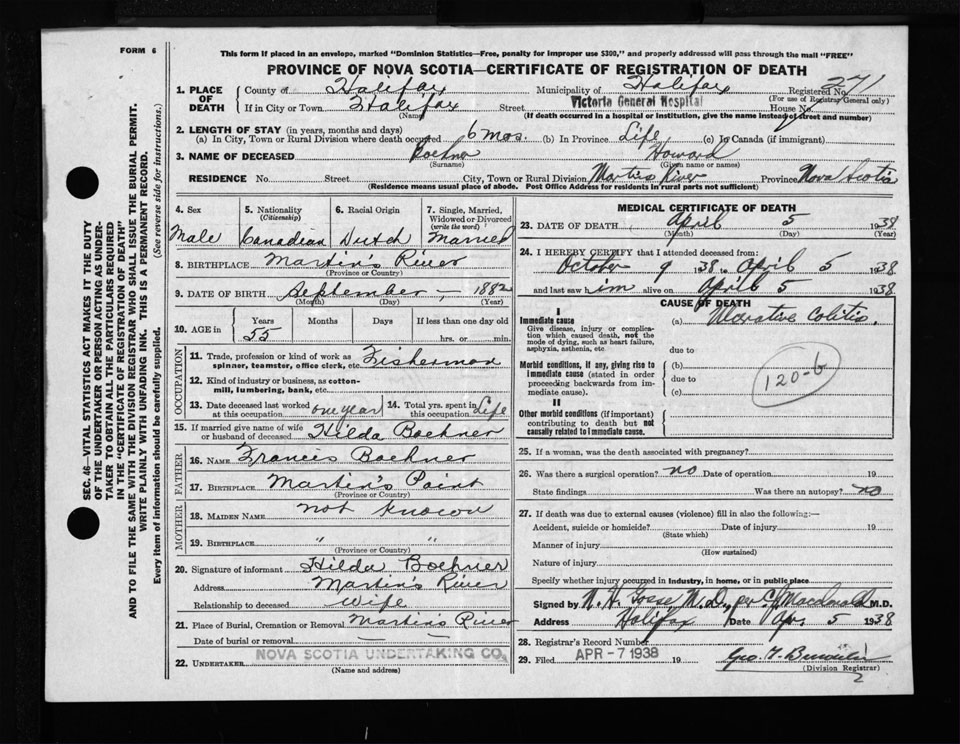 FORM 6
This form if placed in an envelope, marked "Dominion Statistics—Free, penalty for improper use $300," and properly addressed will pass through the mail "FREE"
PROVINCE OF NOVA SCOTIA—CERTIFICATE OF REGISTRATION OF DEATH
1. PLACE OF DEATH
County of Halifax Municipality of Halifax Registered No. 271
(For use of Registrar General only)
If in City or Town Halifax Street Victoria General Hospital House No.
(Name) (If death occurred in a hospital or institution, give the name instead of street and number)
2. LENGTH OF STAY (in years, months and days)
(a) In City, Town or Rural Division where death occurred 6 mos. (b) In Province Life (c) In Canada (if immigrant)
3. NAME OF DECEASED Boehner Howard
(Surname) (Given name or names)
RESIDENCE No. Street City, Town or Rural Division Martins River Province Nova Scotia
(Residence means usual place of abode. Post Office Address for residents in rural parts not sufficient)
4. Sex Male
5. Nationality (Citizenship) Canadian
6. Racial Origin Dutch
7. Single, Married, Widowed or Divorced (write the word) Married
8. BIRTHPLACE Martin's River
(Province or Country)
9. DATE OF BIRTH September — 1882
(Month) (Day) (Year)
10. AGE in Years Months Days If less than one day old
55 hrs. or min.
OCCUPATION
11. Trade, profession or kind of work as spinner, teamster, office clerk, etc. Fisherman
12. Kind of industry or business, as cotton-mill, lumbering, bank, etc.
13. Date deceased last worked at this occupation one year 14. Total yrs. spent in this occupation Life
15. If married give name of wife or husband of deceased Hilda Boehner
FATHER
16. Name Francis Boehner
17. BIRTHPLACE Martin's Point
(Province or Country)
MOTHER
18. MAIDEN NAME not known
19. BIRTHPLACE " "
(Province or Country)
20. Signature of informant Hilda Boehner
Address Martin's River
Relationship to deceased wife
21. Place of Burial, Cremation or Removal Martin's River
Date of burial or removal — —
22. UNDERTAKER NOVA SCOTIA UNDERTAKING CO.
(Name and address)
MEDICAL CERTIFICATE OF DEATH
23. DATE OF DEATH April 5 1938
(Month) (Day) (Year)
24. I HEREBY CERTIFY that I attended deceased from:
October 9 1938 to April 5 1938
and last saw him alive on April 5 1938
CAUSE OF DEATH
I
Immediate cause (a) Ulcerative Colitis.
Give disease, injury or complication which caused death, not the mode of dying, such as heart failure, asphyxia, asthenia, etc
due to
Morbid conditions, if any, giving rise to immediate cause (stated in order proceeding backwards from immediate cause).
(b)
due to
(c)
120-b
II
Other morbid conditions (if important) contributing to death but not causally related to immediate cause.
25. If a woman, was the death associated with pregnancy?
26. Was there a surgical operation? no Date of operation 19
State findings Was there an autopsy? no
27. If death was due to external causes (violence) fill in also the following:—
Accident, suicide or homicide? Date of injury 19
(State which)
Manner of injury
(How sustained)
Nature of injury
Specify whether injury occurred in industry, in home, or in public place
Signed by N. H. Gosse M.D. per C. J. Macdonald M.D.
Address Halifax Date Apr. 5 1938
28. Registrar's Record Number
29. Filed APR -7 1938 19
(Division Registrar)
SEC. 46—VITAL STATISTICS ACT MAKES IT THE DUTY
OF THE UNDERTAKER OR PERSON ACTING AS UNDER-
TAKER TO OBTAIN ALL THE PARTICULARS REQUIRED
IN THE "CERTIFICATE OF REGISTRATION OF DEATH"
AND TO FILE THE SAME WITH THE DIVISION REGISTRAR WHO SHALL ISSUE THE BURIAL PERMIT.
WRITE PLAINLY WITH UNFADING INK. THIS IS A PERMANENT RECORD.
Every item of information should be carefully supplied. (See reverse side for instructions.)